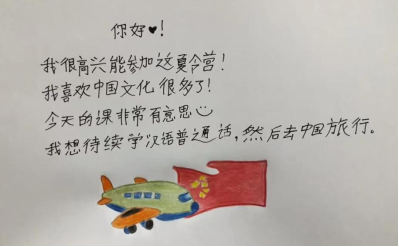 你好♥!
我很高兴能参加这夏令营!
我喜欢中国文化很多了!
今天的课非常有意思☺
我想待续学汉语普通话,然后去中国旅行。